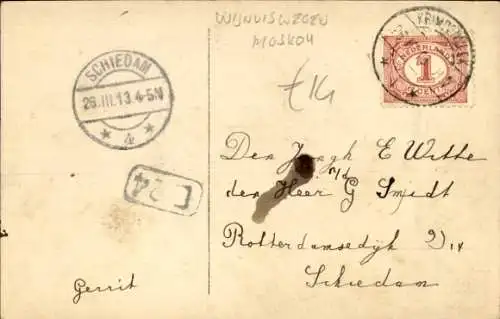 WIJNHUISWEGEN
MOSKOU
£14
SCHIEDAM
26.III.13.4-5N
4
C 24
NEDERLAND
1
CENT
Den Jongh E Witte
v/d
den Heer G Smidt
Rotterdamsedijk
Schiedam
Gerrit